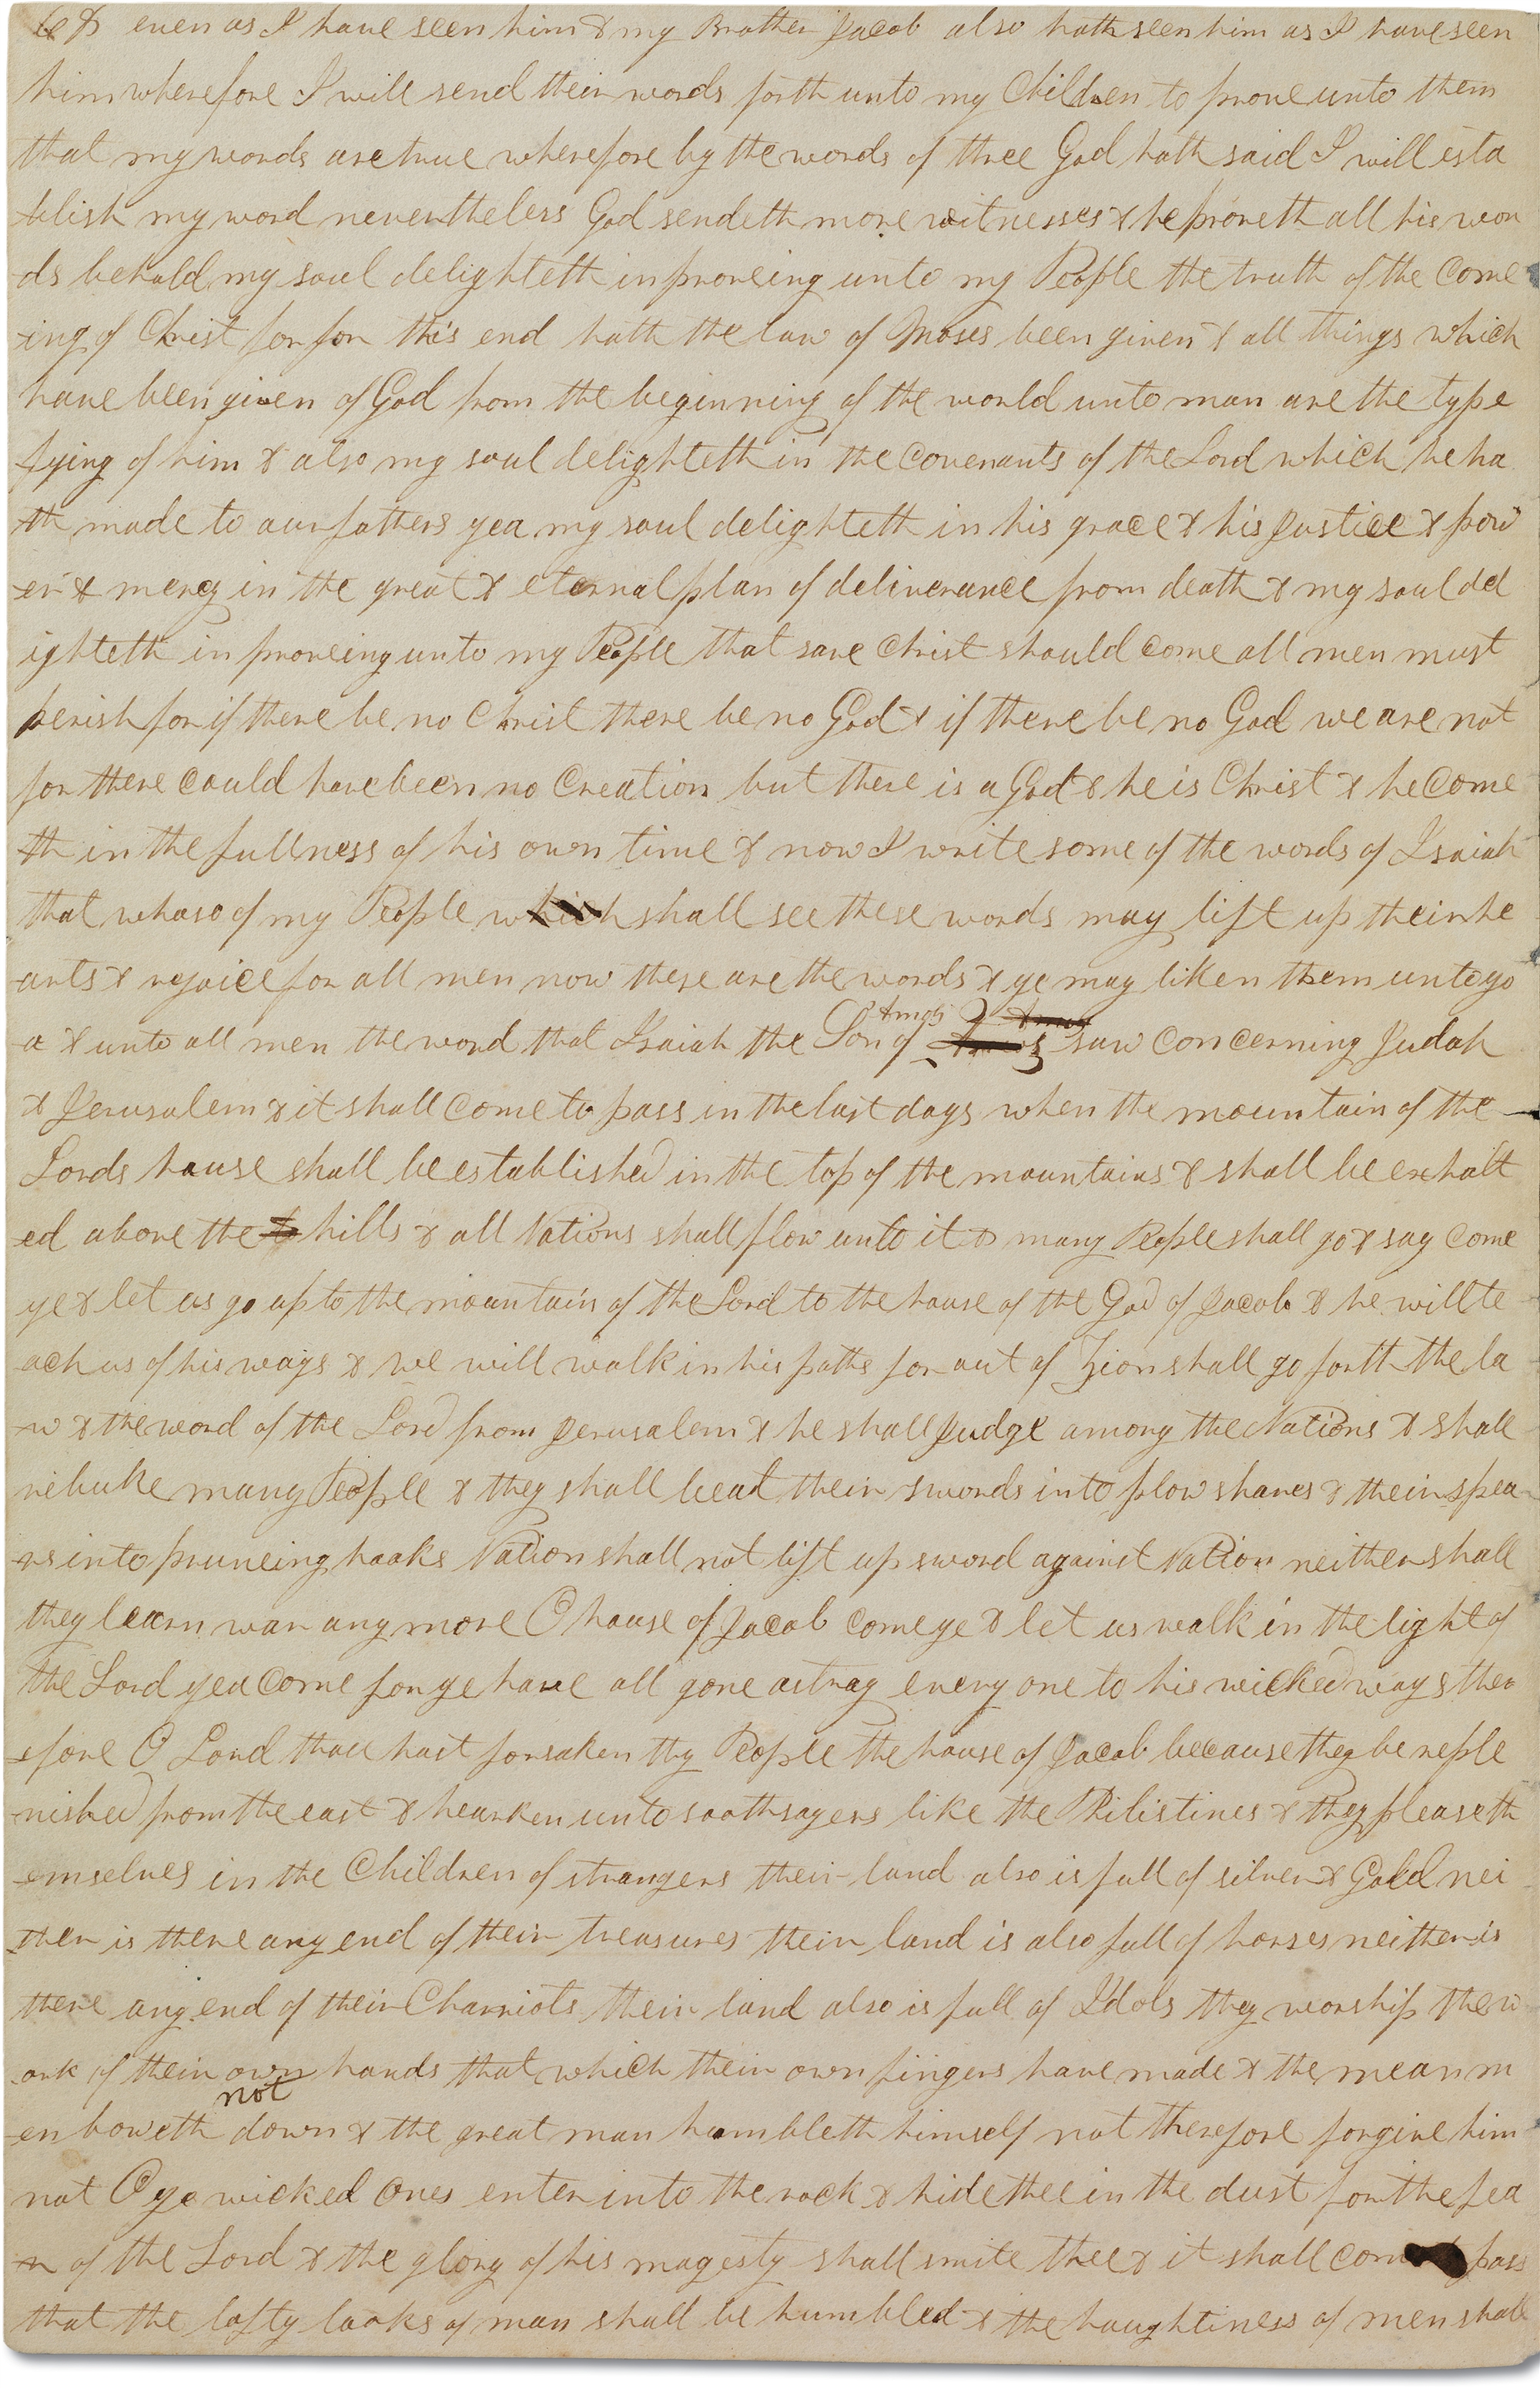 even as I have seen him & my Brother Jacob also hath seen him as I have seen
him wherefore I will send their words forth unto my Children to prove unto them
that my words are true wherefore by the words of three God hath said I will esta
-blish my word nevertheless God sendeth more witnesses & he proveth all his wor
ds behold my soul delighteth in proveing unto my People the truth of the Come
-ing of Christ for for this end hath the law of Moses been given & all things which
have been given of God from the beginning of the world unto man are the type
fying of him & also my soul delighteth in the Covenants of the Lord which he ha
-th made to our fathers yea my soul delighteth in his grace & his Justice & pow
-er & mercy in the great & eternal plan of deliverance from death & my soul del
ighteth in proveing unto my People that save Christ should come all men must
perish for if there be no Christ there be no God & if there be no God we are not
for there could have been no Creation but there is a God & he is Christ & he Come
-th in the fullness of his own time & now I write some of the words of Isaiah
that whoso of my People which shall see these words may lift up their he
-arts & rejoice for all men now these are the words & ye may liken them unto yo
-u & unto all men the word that Isaiah the Son of Amoz saw Concerning Judah
& Jerusalem & it shall Come to pass in the last days when the mountain of the
Lords house shall be established in the top of the mountains & shall be exhalt
ed above the hills & all Nations shall flow unto it & many People shall go & say Come
ye & let us go up to the mountain of the Lord to the house of the God of Jacob & he will te
-ach us of his ways & we will walk in his paths for out of Zion shall go forth the la
-w & the word of the Lord from Jerusalem & he shall Judge among the Nations & shall
rebuke many People & they shall beat their swords into plow shares & their spea
-rs into pruneing hooks Nation shall not lift up sword against Nation neither shall
they learn war any more O house of Jacob Come ye & let us walk in the light of
the Lord yea Come for ye have all gone astray every one to his wicked ways ther
-efore O Lord thou hast forsaken thy People the house of Jacob because they be reple
-nished from the east & hearken unto soothsayers like the Philistines & they please th
-emselves in the Children of strangers their land also is full of silver & Gold nei
-ther is there any end of their treasures their land is also full of horses neither is
there any end of their Charriots their land also is full of Idols they worship the w
-ork of their own hands that which their own fingers have made & the mean m
-en boweth not down & the great man humbleth himself not therefore forgive him
not O ye wicked Ones enter into the rock & hide thee in the dust for the fea
-r of the Lord & the glory of his magesty shall smite thee & it shall com pass
that the lofty looks of man shall be humbled & the haughtiness of men shall